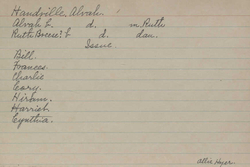 Handville, Alvah.
Alvah b. d. m. Ruth
Ruth Breese? b d. dau.
Issue.
Bill.
Frances.
Charlie
Gary.
Hiram.
Harriet
Cynthia.
Allie